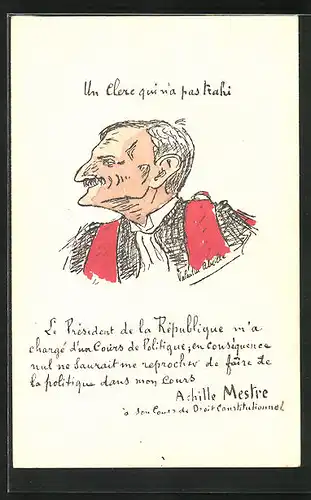 Un Clerc qui n'a pas trahi
Le Président de la République m'a
chargé d'un Cours de Politique; en conséquence
nul ne saurait me reprocher de faire de
la politique dans mon Cours
Achille Mestre
à son Cours de Droit Constitutionnel